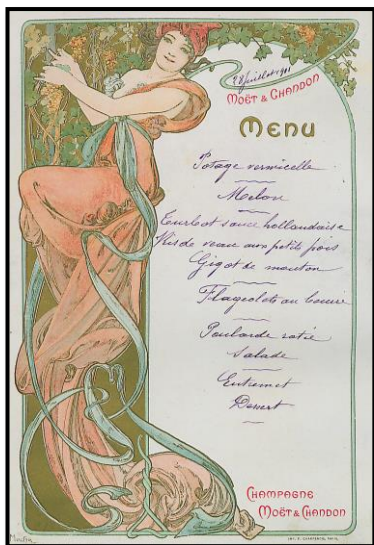 28 Juillet 1901
MOËT & CHANDON
MENU
Potage vermicelle
Melon
Turbot sauce hollandaise
Ris de veau aux petits pois
Gigot de mouton
Flageolets au beurre
Poularde rotie
Salade
Entremet
Dessert
CHAMPAGNE
MOËT & CHANDON
Mucha
IMP. F. CHAMPENOIS, PARIS.